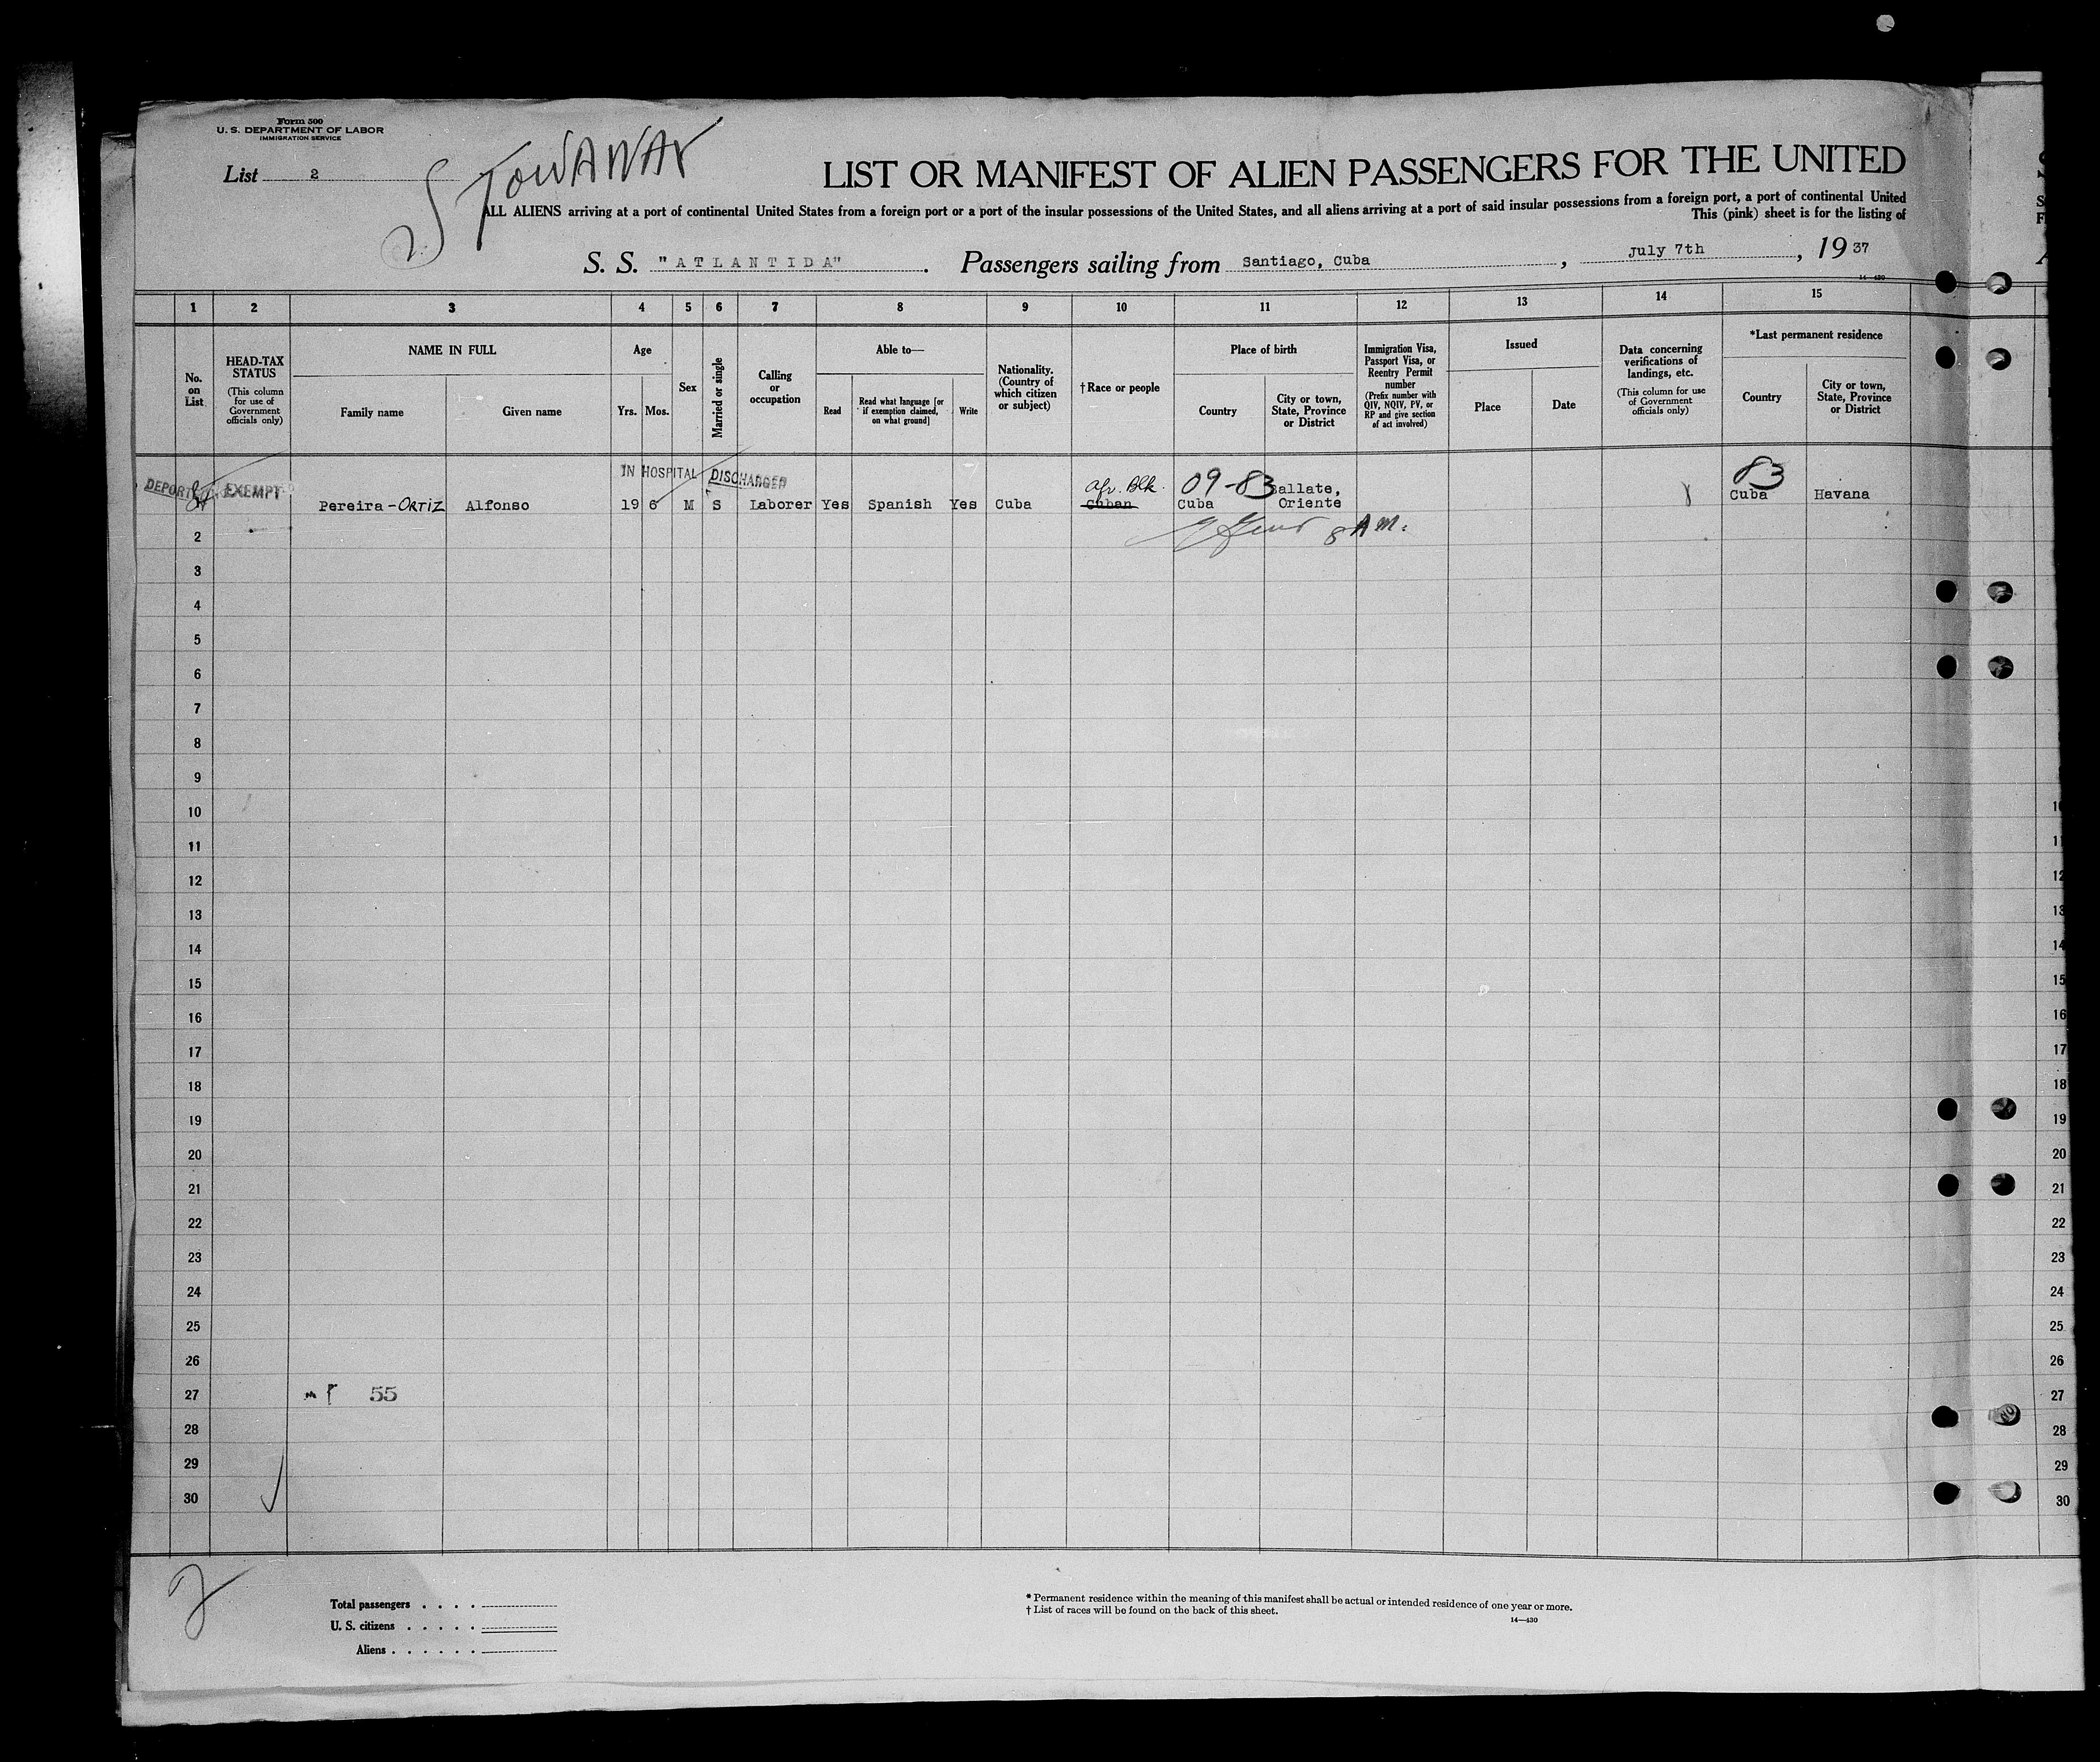 Form 500
U. S. DEPARTMENT OF LABOR
IMMIGRATION SERVICE
List 2
STOWAWAY
LIST OR MANIFEST OF ALIEN PASSENGERS FOR THE UNITED
ALL ALIENS arriving at a port of continental United States from a foreign port or a port of the insular possessions of the United States, and all aliens arriving at a port of said insular possessions from a foreign port, a port of continental United
This (pink) sheet is for the listing of
S. S. "ATLANTIDA". Passengers sailing from Santiago, Cuba, July 7th, 19 37
14—430
1 2 3 4 5 6 7 8 9 10 11 12 13 14 15
No. on List
HEAD-TAX STATUS
(This column for use of Government officials only)
NAME IN FULL
Family name
Given name
Age
Yrs. Mos.
Sex
Married or single
Calling or occupation
Able to—
Read
Read what language [or if exemption claimed, on what ground]
Write
Nationality. (Country of which citizen or subject)
†Race or people
Place of birth
Country
City or town, State, Province or District
Immigration Visa, Passport Visa, or Reentry Permit number
(Prefix number with QIV, NQIV, PV, or RP and give section of act involved)
Issued
Place
Date
Data concerning verifications of landings, etc.
(This column for use of Government officials only)
*Last permanent residence
Country
City or town, State, Province or District
IN HOSPITAL DISCHARGED
EXEMPT
Afr. Blk. 09-83 83
Pereira-ORTIZ Alfonso 19 6 M S Laborer Yes Spanish Yes Cuba Cuban Cuba Oriente Cuba Havana
8 AM.
2
3
4
5
6
7
8
9
10
11
12
13
14
15
16
17
18
19
20
21
22
23
24
25
26
27 55
28
29
30
2
Total passengers
U. S. citizens
Aliens
* Permanent residence within the meaning of this manifest shall be actual or intended residence of one year or more.
† List of races will be found on the back of this sheet.
14—430
10
11
12
13
14
15
16
17
18
19
20
21
22
23
24
25
26
27
28
29
30